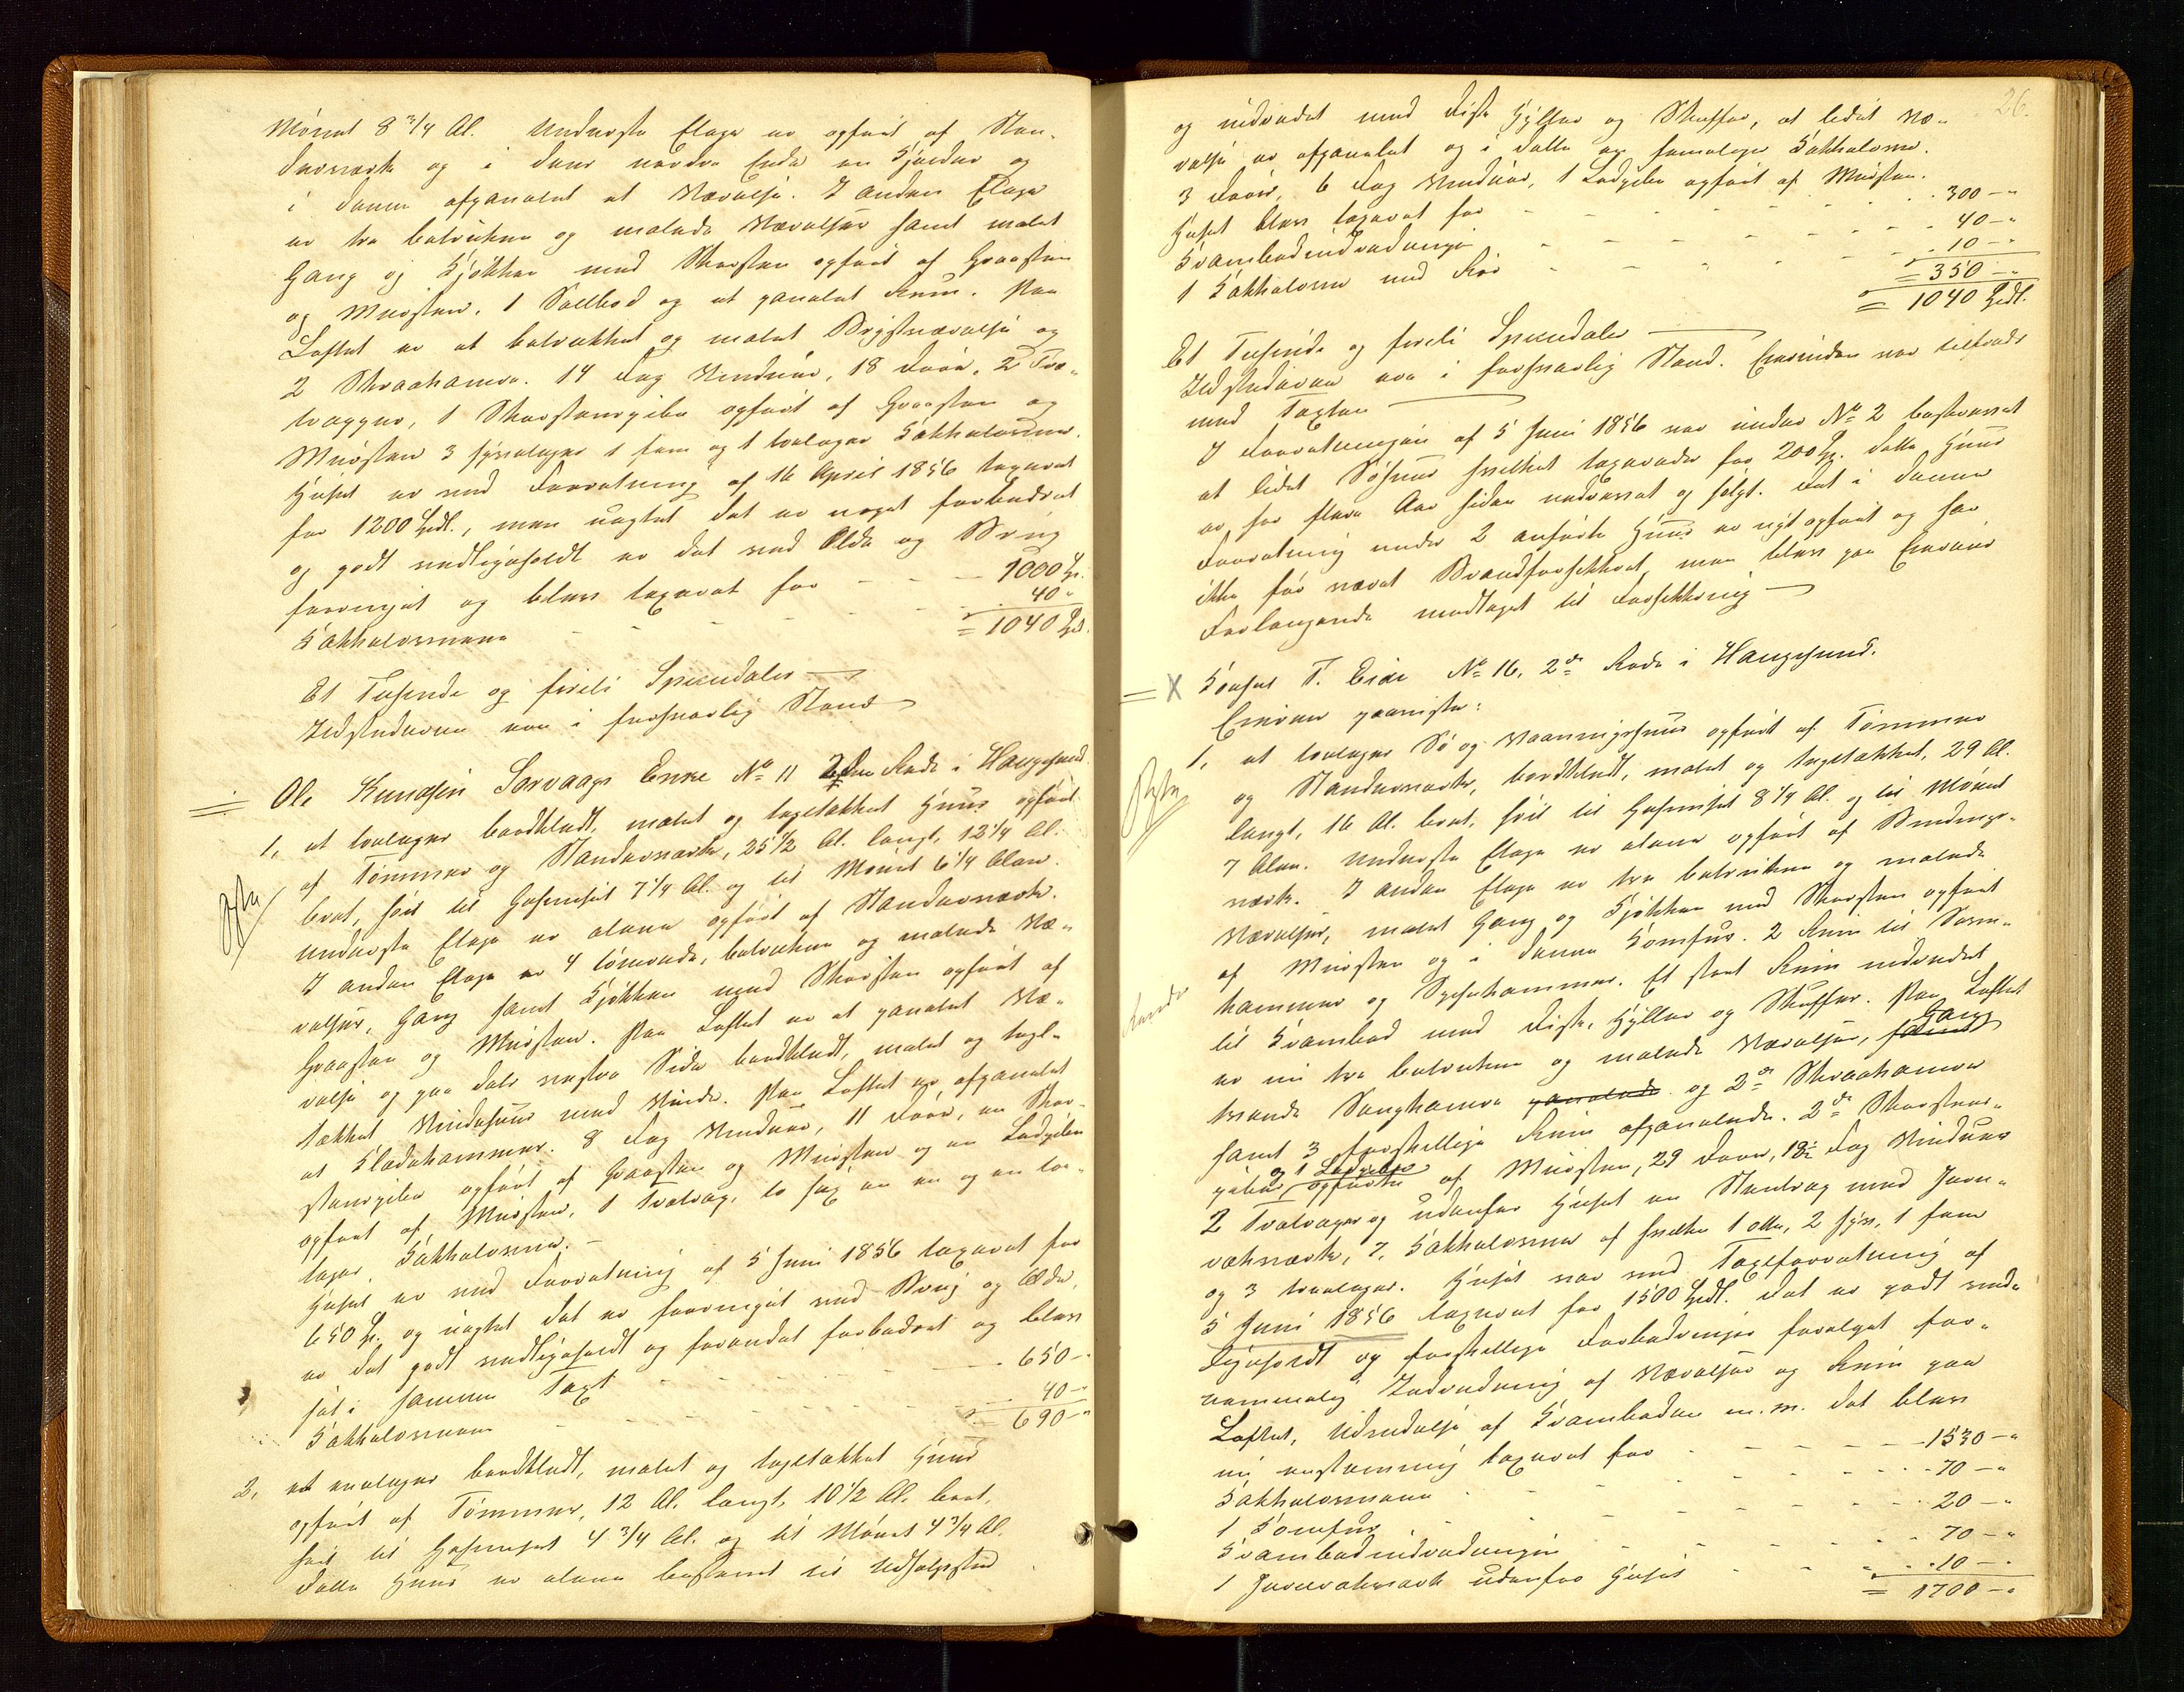 Mönet 8 3/4 Al. Underste Etage er opført af Sten-
derværk og i dens nordre Ende en Kjelder og
i denne afpanelet et Værelse. I anden Etage
er tre betrukne og malede Værelser samt malet
Gang og Kjøkken med Skorsten opført af Graasten
og Mursten. 1 Salbod og et panelet Rum. Paa
Loftet er et betrukket og malet Brystværelse og
2 Skraakamre. 14 Fag Vinduer, 18 Døre, 2 Træ-
trapper, 1 Skorstenspibe opført af Graasten og
Mursten 3 fyrelages 1 fem og 1 tolages Kakkelovne.
Huset er ved Forretning af 16 April 1856 taxeret
for 1200 Spdl., men uagtet det er noget forbedret
og godt vedligeholdt er det ved Ælde og Brug
forringet og blev taxeret for - - - 1000 Sp.
Kakkelovnene - - - - 40 "
= 1040 Spd.
Et Tusinde og firti Speciedaler
Ildstederne ere i forsvarlig Stand
Ole Knudsen Sørvaags Enke No 11 2den Rode i Haugesund
1, et tolages bordklædt, malet og tagstækket Huus opført
af Tømmer og Stenderværk, 25 1/2 Al. langt, 12 1/4 Al.
bret, høit til Gesimset 7 1/4 Al. og til Mönet 6 1/4 Alen.
underste Etage er alene opført af Stenderværk.
I anden Etage er 4 tømrede, betrukne og malede Væ-
relser, Gang samt Kjøkken med Skorsten opført af
Graasten og Mursten. Paa Loftet er et panelet Væ-
relse og paa dets vestre Side bordklædt, malet og tegl-
tækket Vindehuus med Vinde. Paa Loftet er afpanelet
et Klædekammer. 8 Fag Vinduer, 11 Døre, en Skor-
stenspibe opført af Graasten og Mursten og en Ledpibe
opført af Mursten, 1 Trætrap, to sex en en og en to-
lages Kakkelovne. -
Huset er ved Forretning af 5 Juni 1856 taxeret for
650 Sp. og uagtet det er forringet ved Brug og Ælde
er det godt vedligeholdt og forandet forbedret og blev
sat i samme Taxt - - - - 650 - "
Kakkelovnene - - - - 40 - "
= 690 - "
2, et enlages bordklædt, malet og tagstækket Huus
opført af Tømmer, 12 Al. langt, 10 1/2 Al. bret,
høit til Gesimset 4 3/4 Al. og til Mönet 4 3/4 Al.
dette Huus er alene bestemt til Udsalgssted
26.
og indredet med Disk Hylder og Skuffer, et lidet Væ-
relse er afpanelet og i dette en femlages Kakkelovn.
3 Døre, 6 Fag Vinduer, 1 Ledpibe opført af Mursten.
Huset blev taxeret for - - - - 300 - "
Krambodindredningen - - - - 40 - "
1 Kakkelovn med Rør - - - - 10 - "
= 350 - "
= 1040 Spdl.
Et Tusinde og firti Speciedaler
Ildstederne ere i forsvarlig Stand. Eierinden var tilfreds
med Taxten
I Forretningen af 5 Juni 1856 var under No 2 beskrevet
et lidet Søhuus hvilket taxeredes for 200 Sp. dette Huus
er for flere Aar siden nedrevet og solgt. Det i denne
Forretning under 2 anførte Huus er nyt opført og har
ikke før været Brandforsikkret, men blev paa Eierens
Forlangende medtaget til Forsikkring
X Konsul T. Eide No 16, 2de Rode i Haugesund.
Eieren paaviste:
1, et tolages Sø og Vaaningshuus opført af Tømmer
og Stenderværk, bordklædt, malet og tagstækket, 29 Al.
langt, 16 Al. bret, høit til Gesimset 8 1/4 Al. og til Mönet
7 Alen. Underste Etage er alene opført af Bindings-
værk. I anden Etage er tre betrukne og malede
Værelser, malet Gang og Kjøkken med Skorsten opført
af Mursten og i denne Komfur. 2 Rum til
kammer og Spisekammer. Et stort Rum indredet
til Krambod med Disk, Hylder og Skuffer. Paa Loftet
er nu tre betrukne og malede Værelser, Gang
tvende Sengkamre og 2de Skraakamre
samt 3 forskellige Rum afpanelede. 2de Skorstens-
piber og 1 Ledpibe opførte af Mursten, 29 Døre, 18 Fag Vinduer
2 Trætrapper og udenfor Huset en Stentrap med Jern-
rækværk, 7, Kakkelovne af hvilke 1 otte, 2 fyr, 1 fem
og 3 trælages. Huset var ved Taxtforretning af
5 Juni 1856 taxeret for 1500 Spdl. Det er godt ved-
ligeholdt og forskellige Forbedringer foretaget for-
nemmelig Indredning af Værelser og Rum paa
Loftet, Udvidelse af Kramboden m.m. det blev
nu enstemmig taxeret for - - - - 1530 - "
Kakkelovnene - - - - 70 - "
1 Komfur - - - - 20 - "
Krambodindredningen - - - - 70 - "
1 Jernrækværk udenfor Huset - - - - 10 - "
= 1700 - "